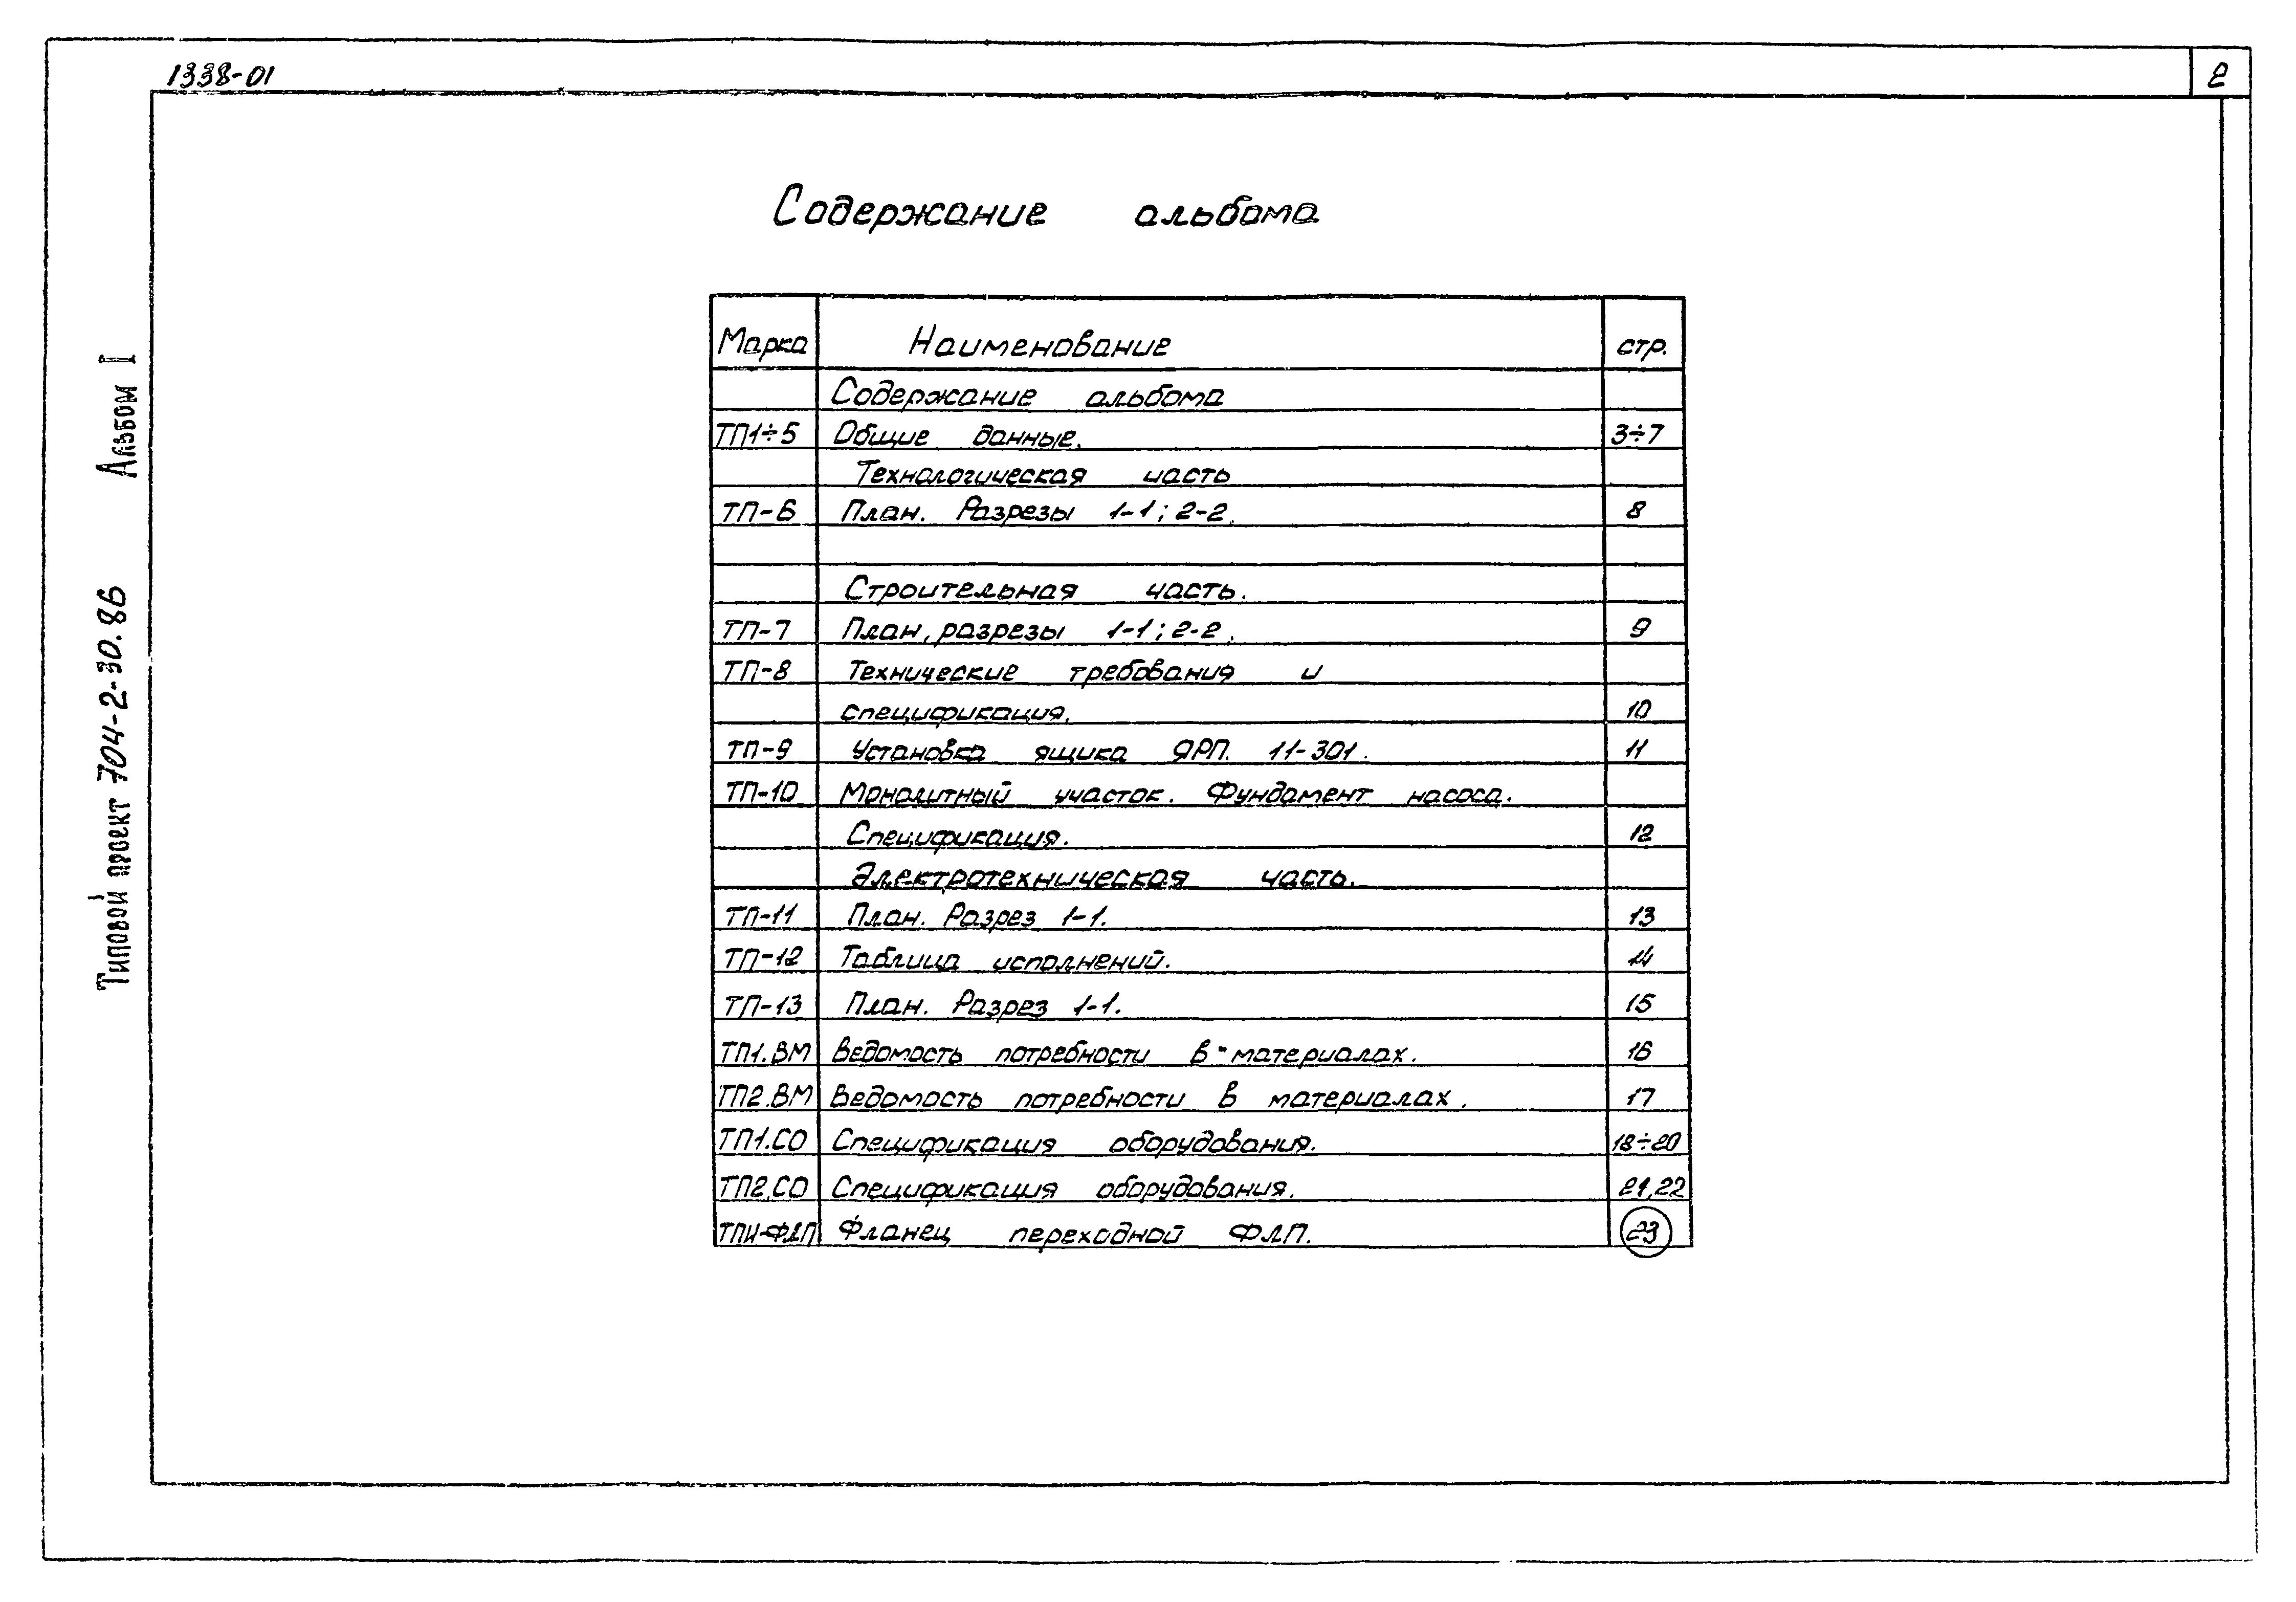 1338-01
2
Типовой проект 704-2-30.86 Альбом I
Содержание альбома
Марка Наименование стр.
Содержание альбома
ТП1÷5 Общие данные. 3÷7
Технологическая часть
ТП-6 План. Разрезы 1-1; 2-2. 8
Строительная часть.
ТП-7 План, разрезы 1-1; 2-2. 9
ТП-8 Технические требования и
спецификация. 10
ТП-9 Установка ящика ЯРП. 11-301. 11
ТП-10 Монолитный участок. Фундамент насоса.
Спецификация. 12
Электротехническая часть.
ТП-11 План. Разрез 1-1. 13
ТП-12 Таблица исполнений. 14
ТП-13 План. Разрез 1-1. 15
ТП1.ВМ Ведомость потребности в материалах. 16
ТП2.ВМ Ведомость потребности в материалах. 17
ТП1.СО Спецификация оборудования. 18÷20
ТП2.СО Спецификация оборудования. 21,22
ТПИ-ФЛП Фланец переходной ФЛП. 23